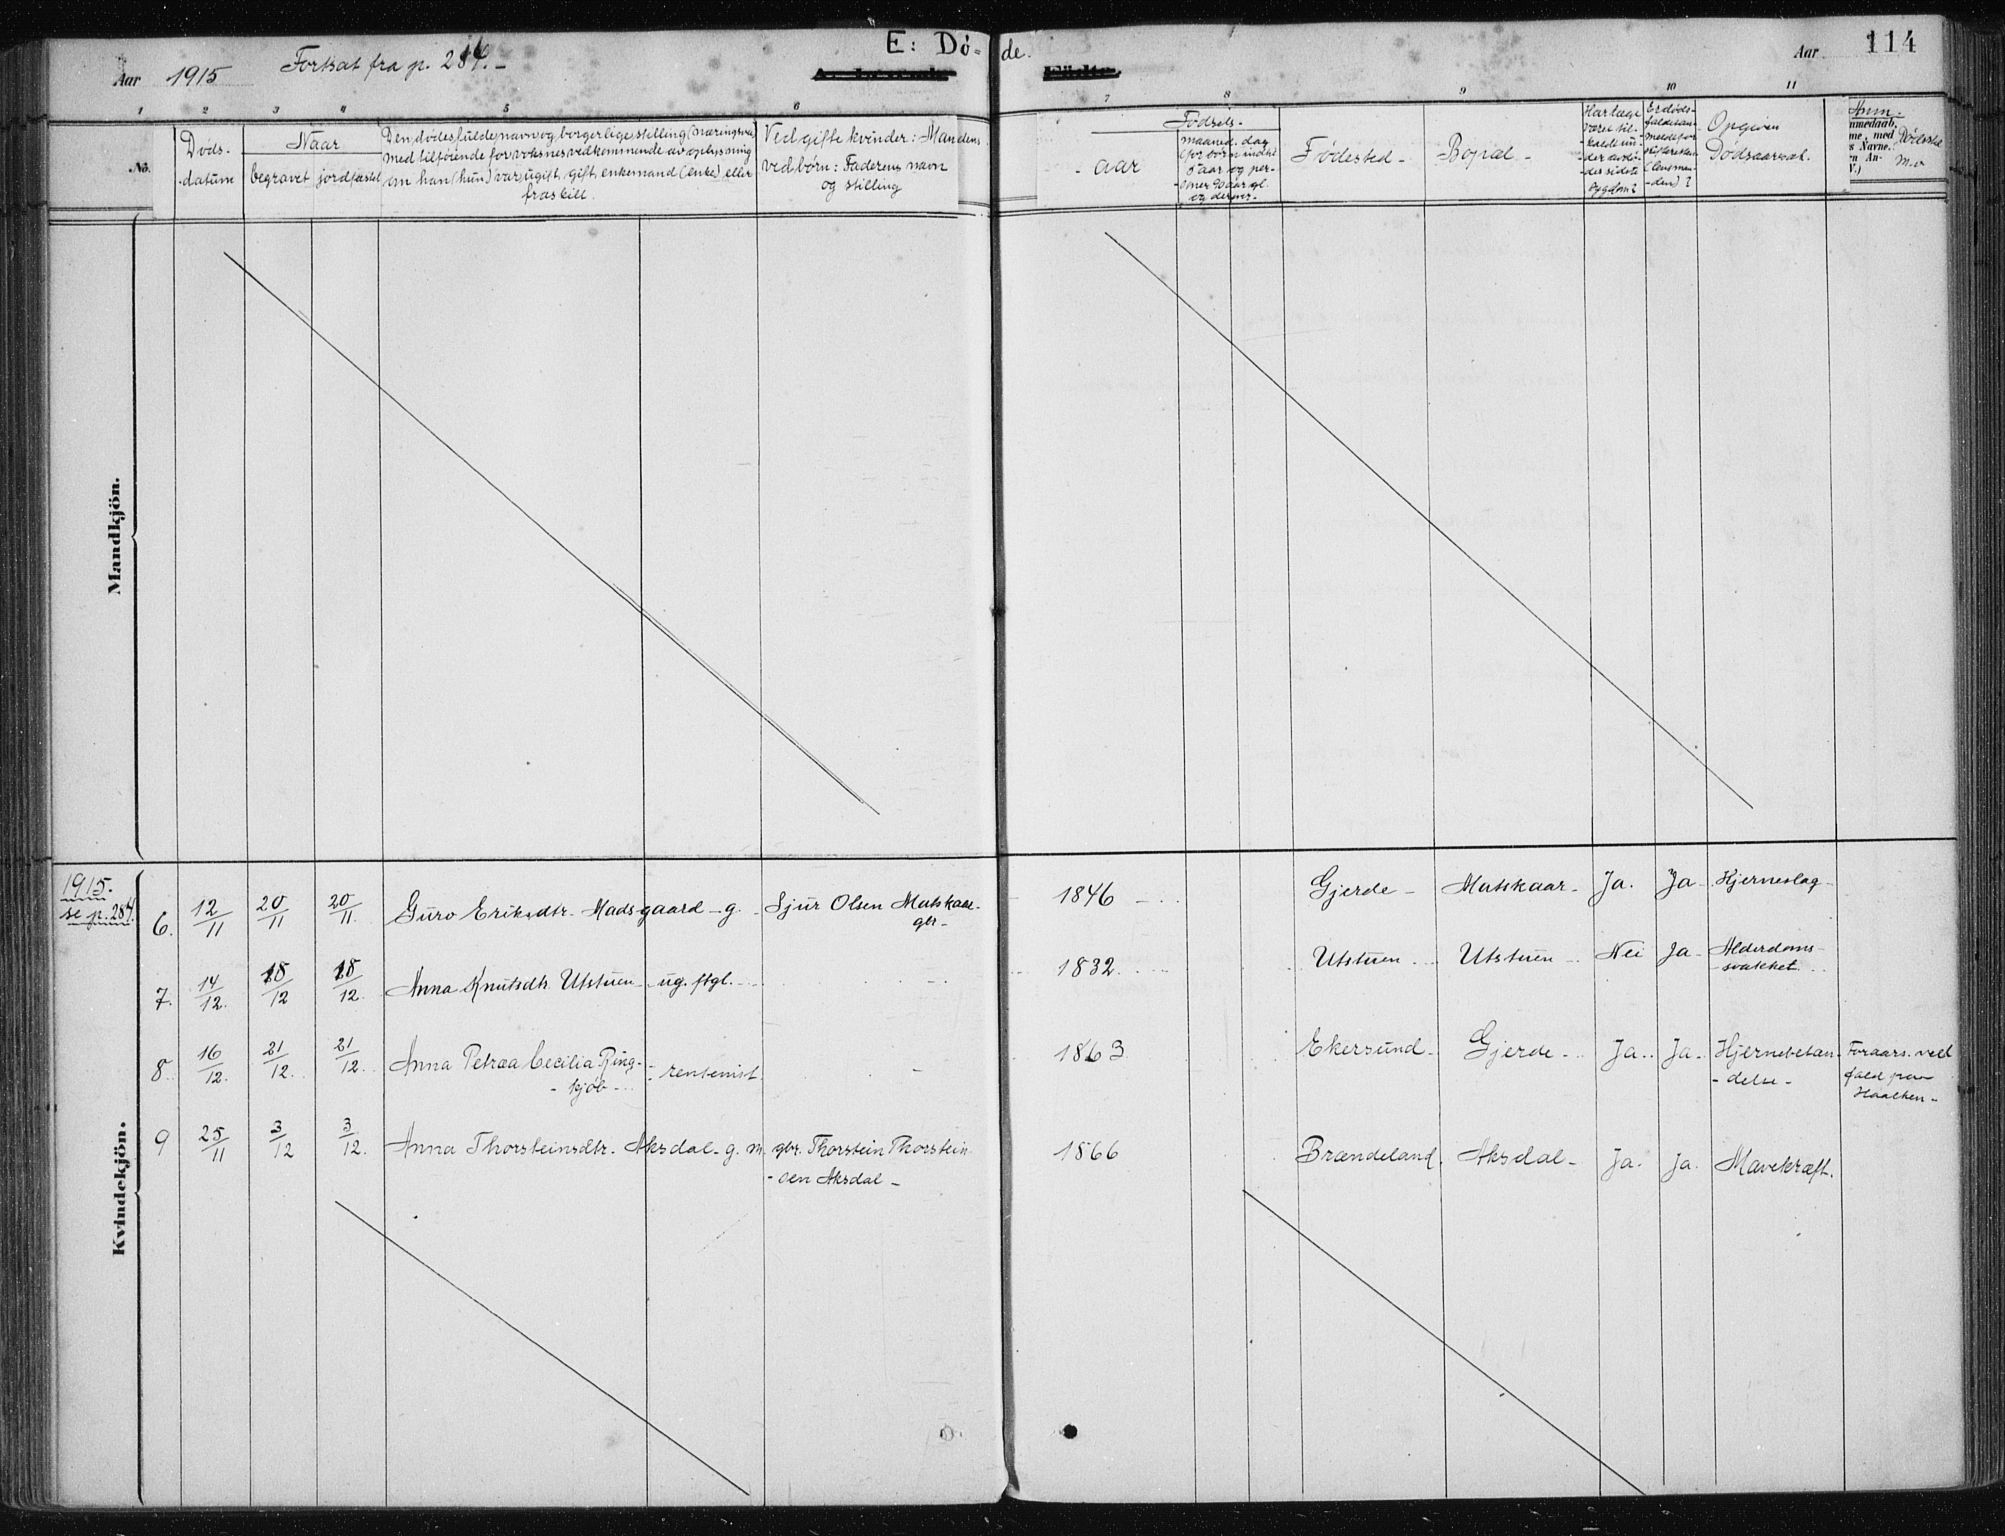 E: Dö- de.
114
Aar 1915 Fortsat fra p. 284. -
Aar
1 2 3 4 5 6 7 8 9 10 11
No.
Døds-
datum
Naar
begravet jordfæstet
Den dødes fulde navn og borgerlige stilling (næringsvei)
med tilføiende for voksnes vedkommende av oplysning
om han (hun) var ugift, gift, enkemand (enke) eller
fraskilt.
Ved gifte kvinder: Mandens
ved børn: Faderens navn
og stilling
Fødsels-
- aar
maaned. dag
(for børn indtil
5 aar og per-
soner 90 aar gl.
og derover-
Fødested -
Bopæl -
Har læge
været til-
kaldt un-
der avdø-
des sidste
sygdom?
Er døds-
faldet an-
meldt for
skifteretten
(lensman-
den)?
Opgiven
Dødsaarsak.
Anm.
Dødssted
m.v.
Mandkjön.
1915.
se p. 284.
Kvindekjön.
6. 12/11 20/11 20/11 Guro Eriksdtr. Madsgaard - g. Sjur Olsen Matskaar
gbr -
1846 Gjerde - Matskaar - Ja. Ja Hjerneslag -
7. 14/12. 18/12 18/12. Anna Knutsdtr. Utstuen - ug. ftgl.
1832 Utstuen Utstuen Nei Ja - Alderdoms-
svakhet.
8 16/12. 21/12. 21/12. Anna Petrea Cecilia Ring- - rentenist.
- kjøb -
1863 Ekersund - Gjerde - Ja Ja - Hjernebetæn-
- delse -
Foraars. ved
fald paa
Haalken -
9 25/11 3/12 3/12. Anna Thorsteinsdtr. Aksdal - g. m. gbr. Thorstein Thorstein
- sen Aksdal -
1866 Brændeland. Aksdal - Ja. Ja. Mavekræft.